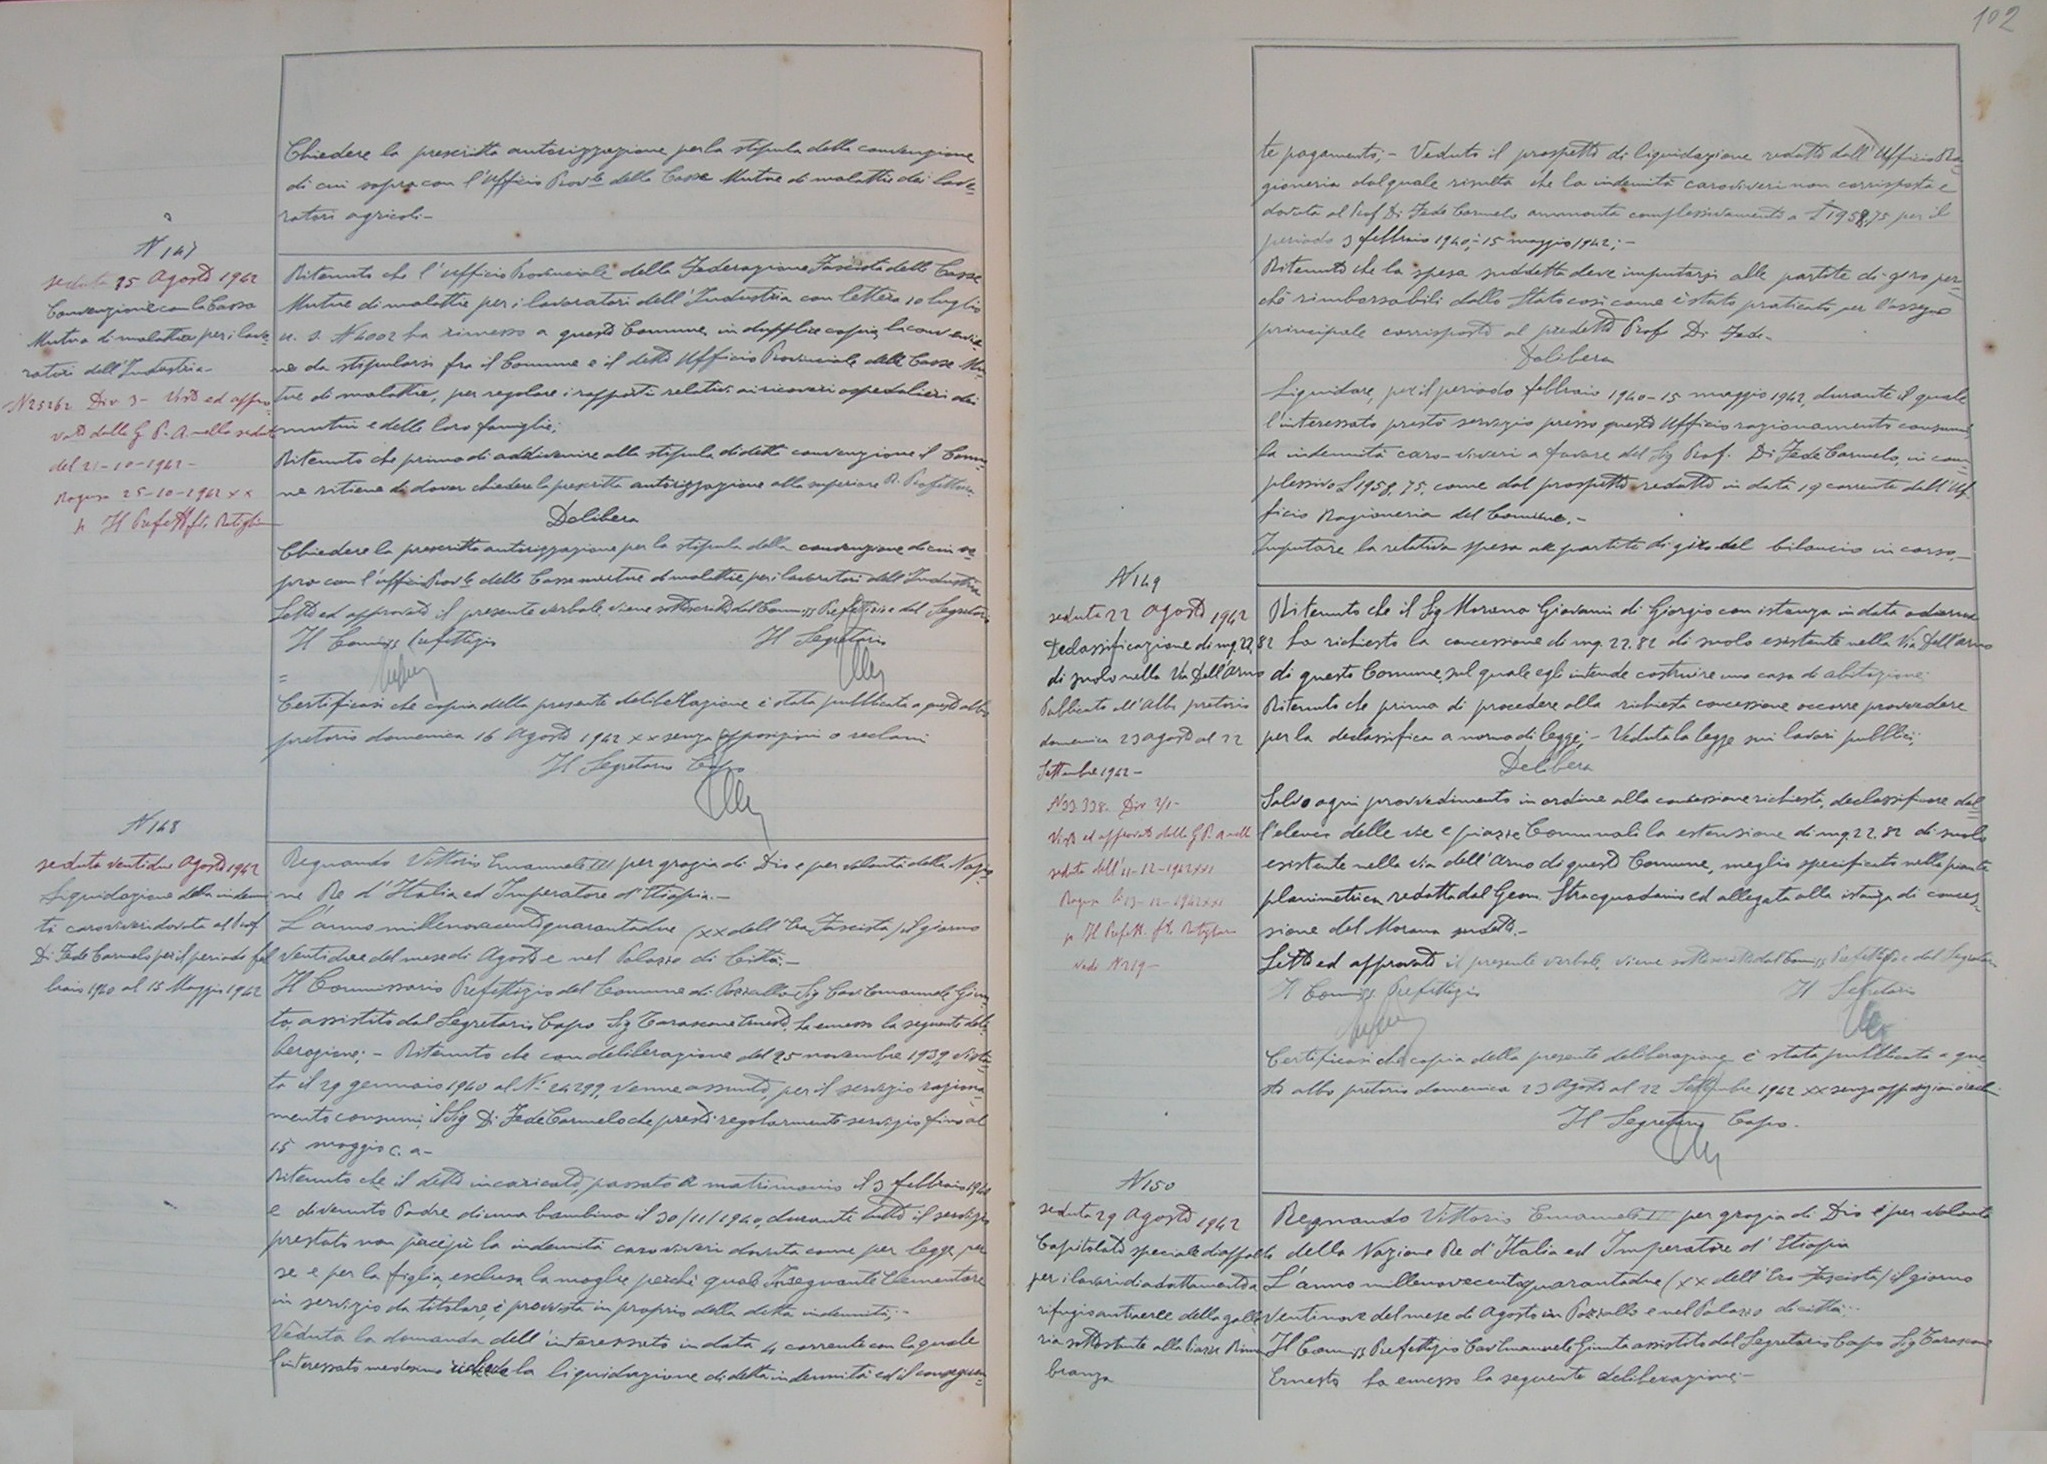 Chiedere la prescritta autorizzazione per la stipula della convenzione
di cui sopra con l'Ufficio Prov.le delle Casse Mutue di malattie dei lavo-
ratori agricoli.-
N 147
seduta 25 Agosto 1942
Convenzione con la Cassa
Mutua di malattia per i lavo-
ratori dell'Industria-
N 25262 Div 3- Visto ed appro-
vato dalla G. P. A. nella seduta
del 21-10-1942-
Ragusa 25-10-1942 XX
p Il Prefetto
Ritenuto che l'Ufficio Provinciale della Federazione Fascista delle Casse
Mutue di malattie per i lavoratori dell'Industria con lettera 10 luglio
u. s. N 4002 ha rimesso a questo Comune, in duplice copia, la convenzio-
ne da stipularsi fra il Comune e il detto Ufficio Provinciale delle Casse Mu-
tue di malattie, per regolare i rapporti relativi ai ricoveri ospedalieri dei
mutui e delle loro famiglie;
Ritenuto che prima di addivenire alla stipula di detta convenzione il Comu-
ne ritiene di dover chiedere la prescritta autorizzazione alla superiore R. Prefettura
Delibera
Chiedere la prescritta autorizzazione per la stipula della convenzione di cui so-
pra con l'Ufficio Prov.le delle Casse mutue di malattie per i lavoratori dell'Industria
Letto ed approvato il presente verbale viene sottoscritto dal Commiss Prefettizio e dal Segretario
Il Commiss Prefettizio Il Segretario
Certificasi che copia della presente deliberazione è stata pubblicata a questo albo
pretorio domenica 16 Agosto 1942 XX senza opposizioni o reclami
Il Segretario Capo
N 148
seduta ventidue Agosto 1942
Liquidazione della indenni
tà caroviveri dovuta al Prof.
Di Fede Carmelo per il periodo feb
braio 1940 al 15 Maggio 1942
Regnando Vittorio Emanuele III per grazia di Dio e per volontà della Nazio-
ne Re d'Italia ed Imperatore d'Etiopia.-
L'anno millenovecentoquarantadue (XX dell'Era Fascista) il giorno
ventidue del mese di Agosto e nel Palazzo di Città.-
Il Commissario Prefettizio del Comune di Pozzallo Sig Cav Emanuele Giun-
ta, assistito dal Segretario Capo Sig Tarascone Ernesto, ha emesso la seguente deli-
berazione:- Ritenuto che con deliberazione del 25 novembre 1939, vista-
ta il 29 gennaio 1940 al N. 24299, venne assunto, per il servizio raziona-
mento consumi, il Sig Di Fede Carmelo che prestò regolarmente servizio fino al
15 maggio c. a.-
Ritenuto che il detto incaricato, passato a matrimonio il 3 febbraio 1940
e divenuto Padre di una bambina il 30/11/1940, durante tutto il servizio
prestato non percepì la indennità caroviveri dovuta come per legge per
se e per la figlia, esclusa la moglie perché quale Insegnante Elementare
in servizio da titolare, è provvista in proprio della detta indennità;-
Veduta la domanda dell'interessato in data 4 corrente con la quale
l'interessato medesimo richiede la liquidazione di detta indennità ed il conseguen-
102
te pagamento;- Veduto il prospetto di liquidazione redatto dall'Ufficio Ra-
gioneria dal quale risulta che la indennità caroviveri non corrisposta e
dovuta al Prof Di Fede Carmelo ammonta complessivamente a £ 1958,75 per il
periodo 3 febbraio 1940;-15 maggio 1942;-
Ritenuto che la spesa suddetta deve imputarsi alle partite di giro per-
ché rimborsabili dallo Stato così come è stato praticato per l'assegno
principale corrisposto al predetto Prof Di Fede-
Delibera
Liquidare, per il periodo febbraio 1940-15 maggio 1942, durante il quale
l'interessato prestò servizio presso questo Ufficio razionamento consumi,
la indennità caro-viveri a favore del Sig Prof. Di Fede Carmelo, in com-
plessive £ 1958,75, come dal prospetto redatto in data 19 corrente dall'Uf-
ficio Ragioneria del Comune.-
Imputare la relativa spesa alle partite di giro del bilancio in corso.-
N 149
seduta 22 Agosto 1942
Declassificazione di mq. 22,82
di suolo nella Via Dell'Arno
Pubblicata all'Albo pretorio
domenica 23 agosto al 22
Settembre 1942-
N 33.338. Div 2/1-
Visto ed approvato dalla G.P.A nella
seduta dell'11-12-1942 XXI
Ragusa lì 13-12-1942 XXI
p Il Prefetto
vedi N 219-
Ritenuto che il Sig Morana Giovanni di Giorgio con istanza in data odierna
ha richiesto la concessione di mq. 22.82 di suolo esistente nella Via Dell'Arno
di questo Comune, sul quale egli intende costruire una casa di abitazione;
Ritenuto che prima di procedere alla richiesta concessione occorre provvedere
per la declassifica a norma di legge;- Veduta la legge sui lavori pubblici;
Delibera
Salvo ogni provvedimento in ordine alla concessione richiesta, declassificare dal-
l'elenco delle vie e piazze Comunali la estensione di mq 22.82 di suolo
esistente nella via dell'Arno di questo Comune, meglio specificato nella pianta
planimetrica redatta dal Geom. Stracquadanio ed allegata alla istanza di conces-
sione del Morana suddetto.-
Letto ed approvato il presente verbale, viene sottoscritto dal Commiss Prefettizio e dal Segretario
Il Commiss. Prefettizio Il Segretario
Certificasi che copia della presente deliberazione è stata pubblicata a que-
sto albo pretorio domenica 23 Agosto al 22 Settembre 1942 XX senza opposizioni o recl.
Il Segretario Capo.
N 150
seduta 29 Agosto 1942
Capitolato speciale di appalto
per i lavori di adattamento a
rifugio antiaereo della galle-
ria sottostante alla Piazza Rimem
branza
Regnando Vittorio Emanuele III per grazia di Dio e per volontà
della Nazione Re d'Italia ed Imperatore d'Etiopia
L'anno millenovecentoquarantadue (XX dell'Era Fascista) il giorno
Ventinove del mese di Agosto in Pozzallo e nel Palazzo di città:-
Il Commiss Prefettizio Cav Emanuele Giunta assistito dal Segretario Capo Sig Tarascone
Ernesto ha emesso la seguente deliberazione:-